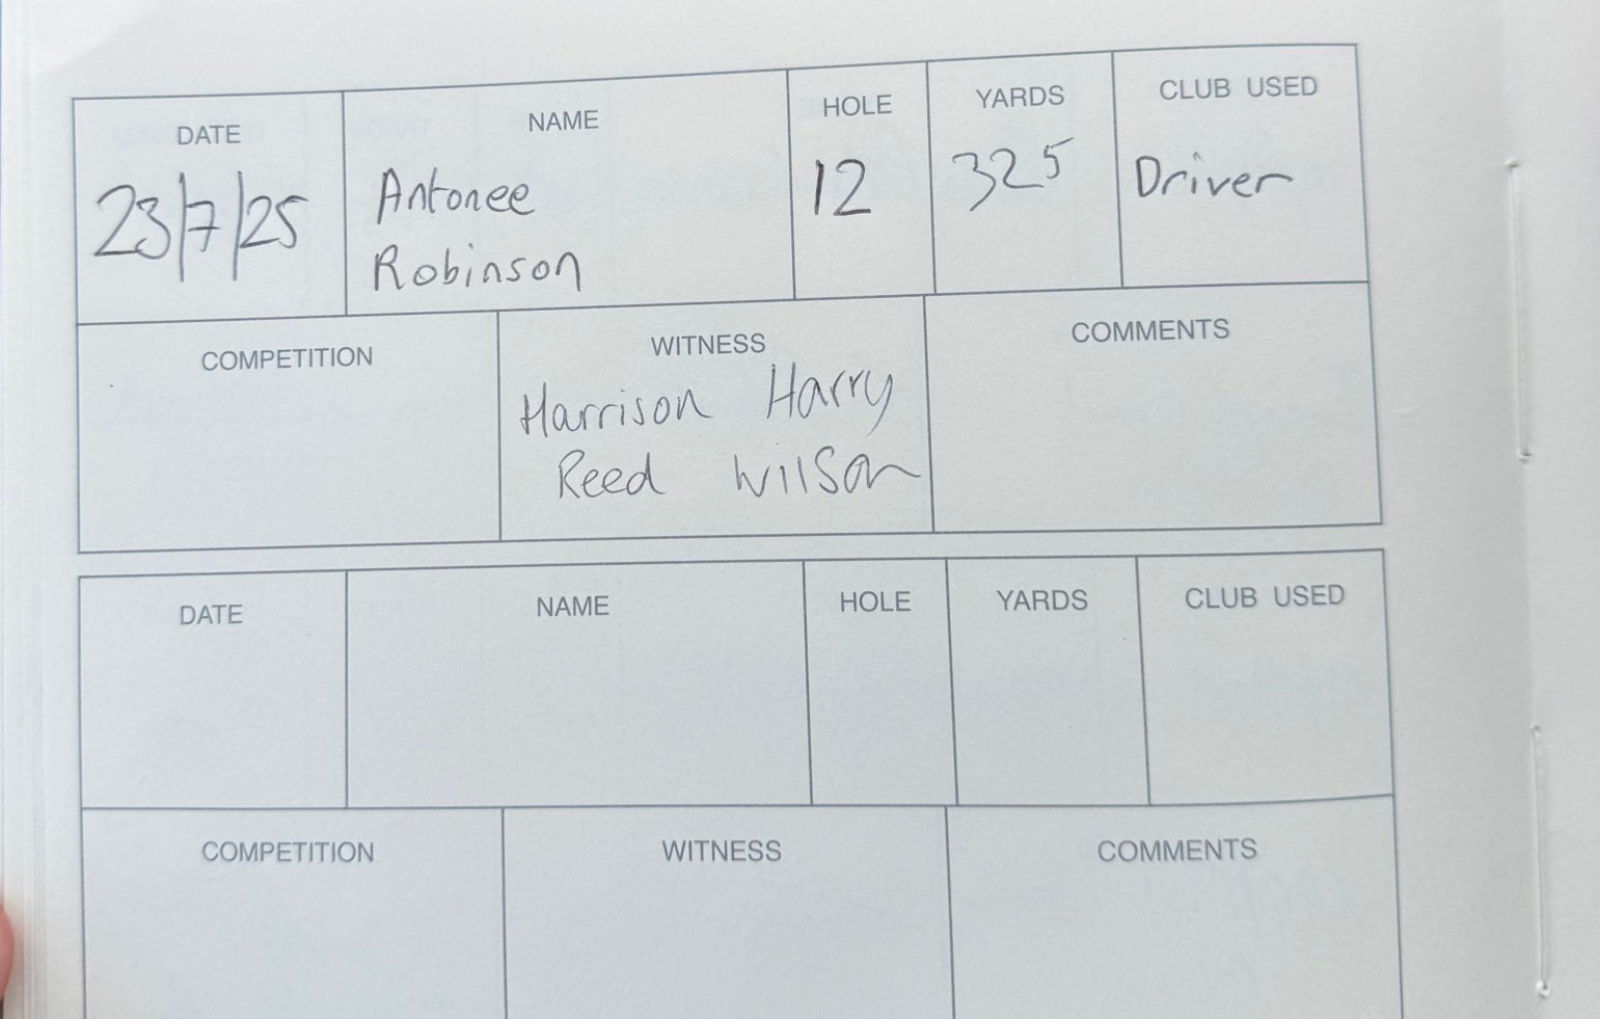 DATE NAME HOLE YARDS CLUB USED
23/7/25 Antonee Robinson 12 325 Driver
COMPETITION WITNESS COMMENTS
Harrison Harry
Reed Wilson
DATE NAME HOLE YARDS CLUB USED
COMPETITION WITNESS COMMENTS